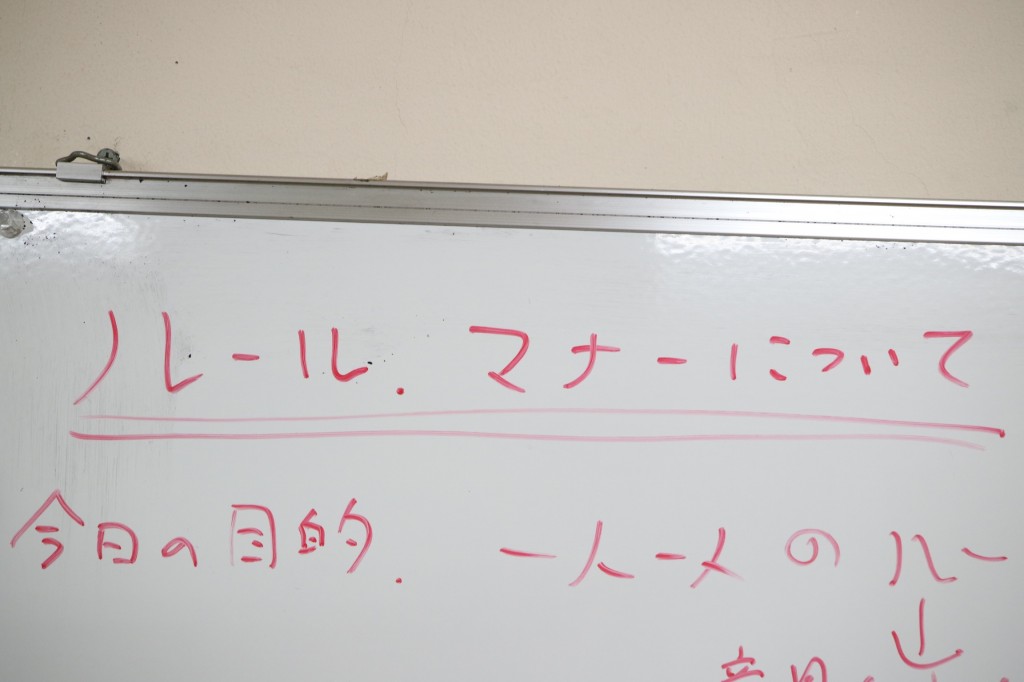 ルール.マナーについて
今日の目的.
一人一人のルー
↓
意見